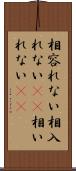 相容れない相入
れない《《相い
れない《《